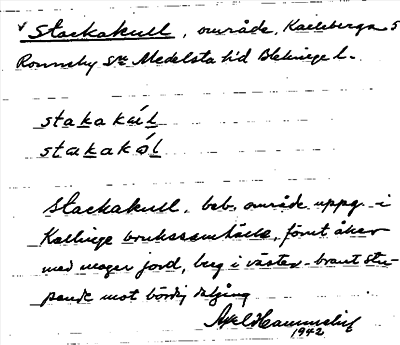 √ Stackakull, område, Kalleberga S
Ronneby sn Medelsta hd Blekinge l.
stakakúl
stakakòl
Stackakull. beb. område uppg. i
Kallinge brukssamhälle, förut åker
med mager jord, berg i väster brant stu-
pande mot bördig dalgång
1942